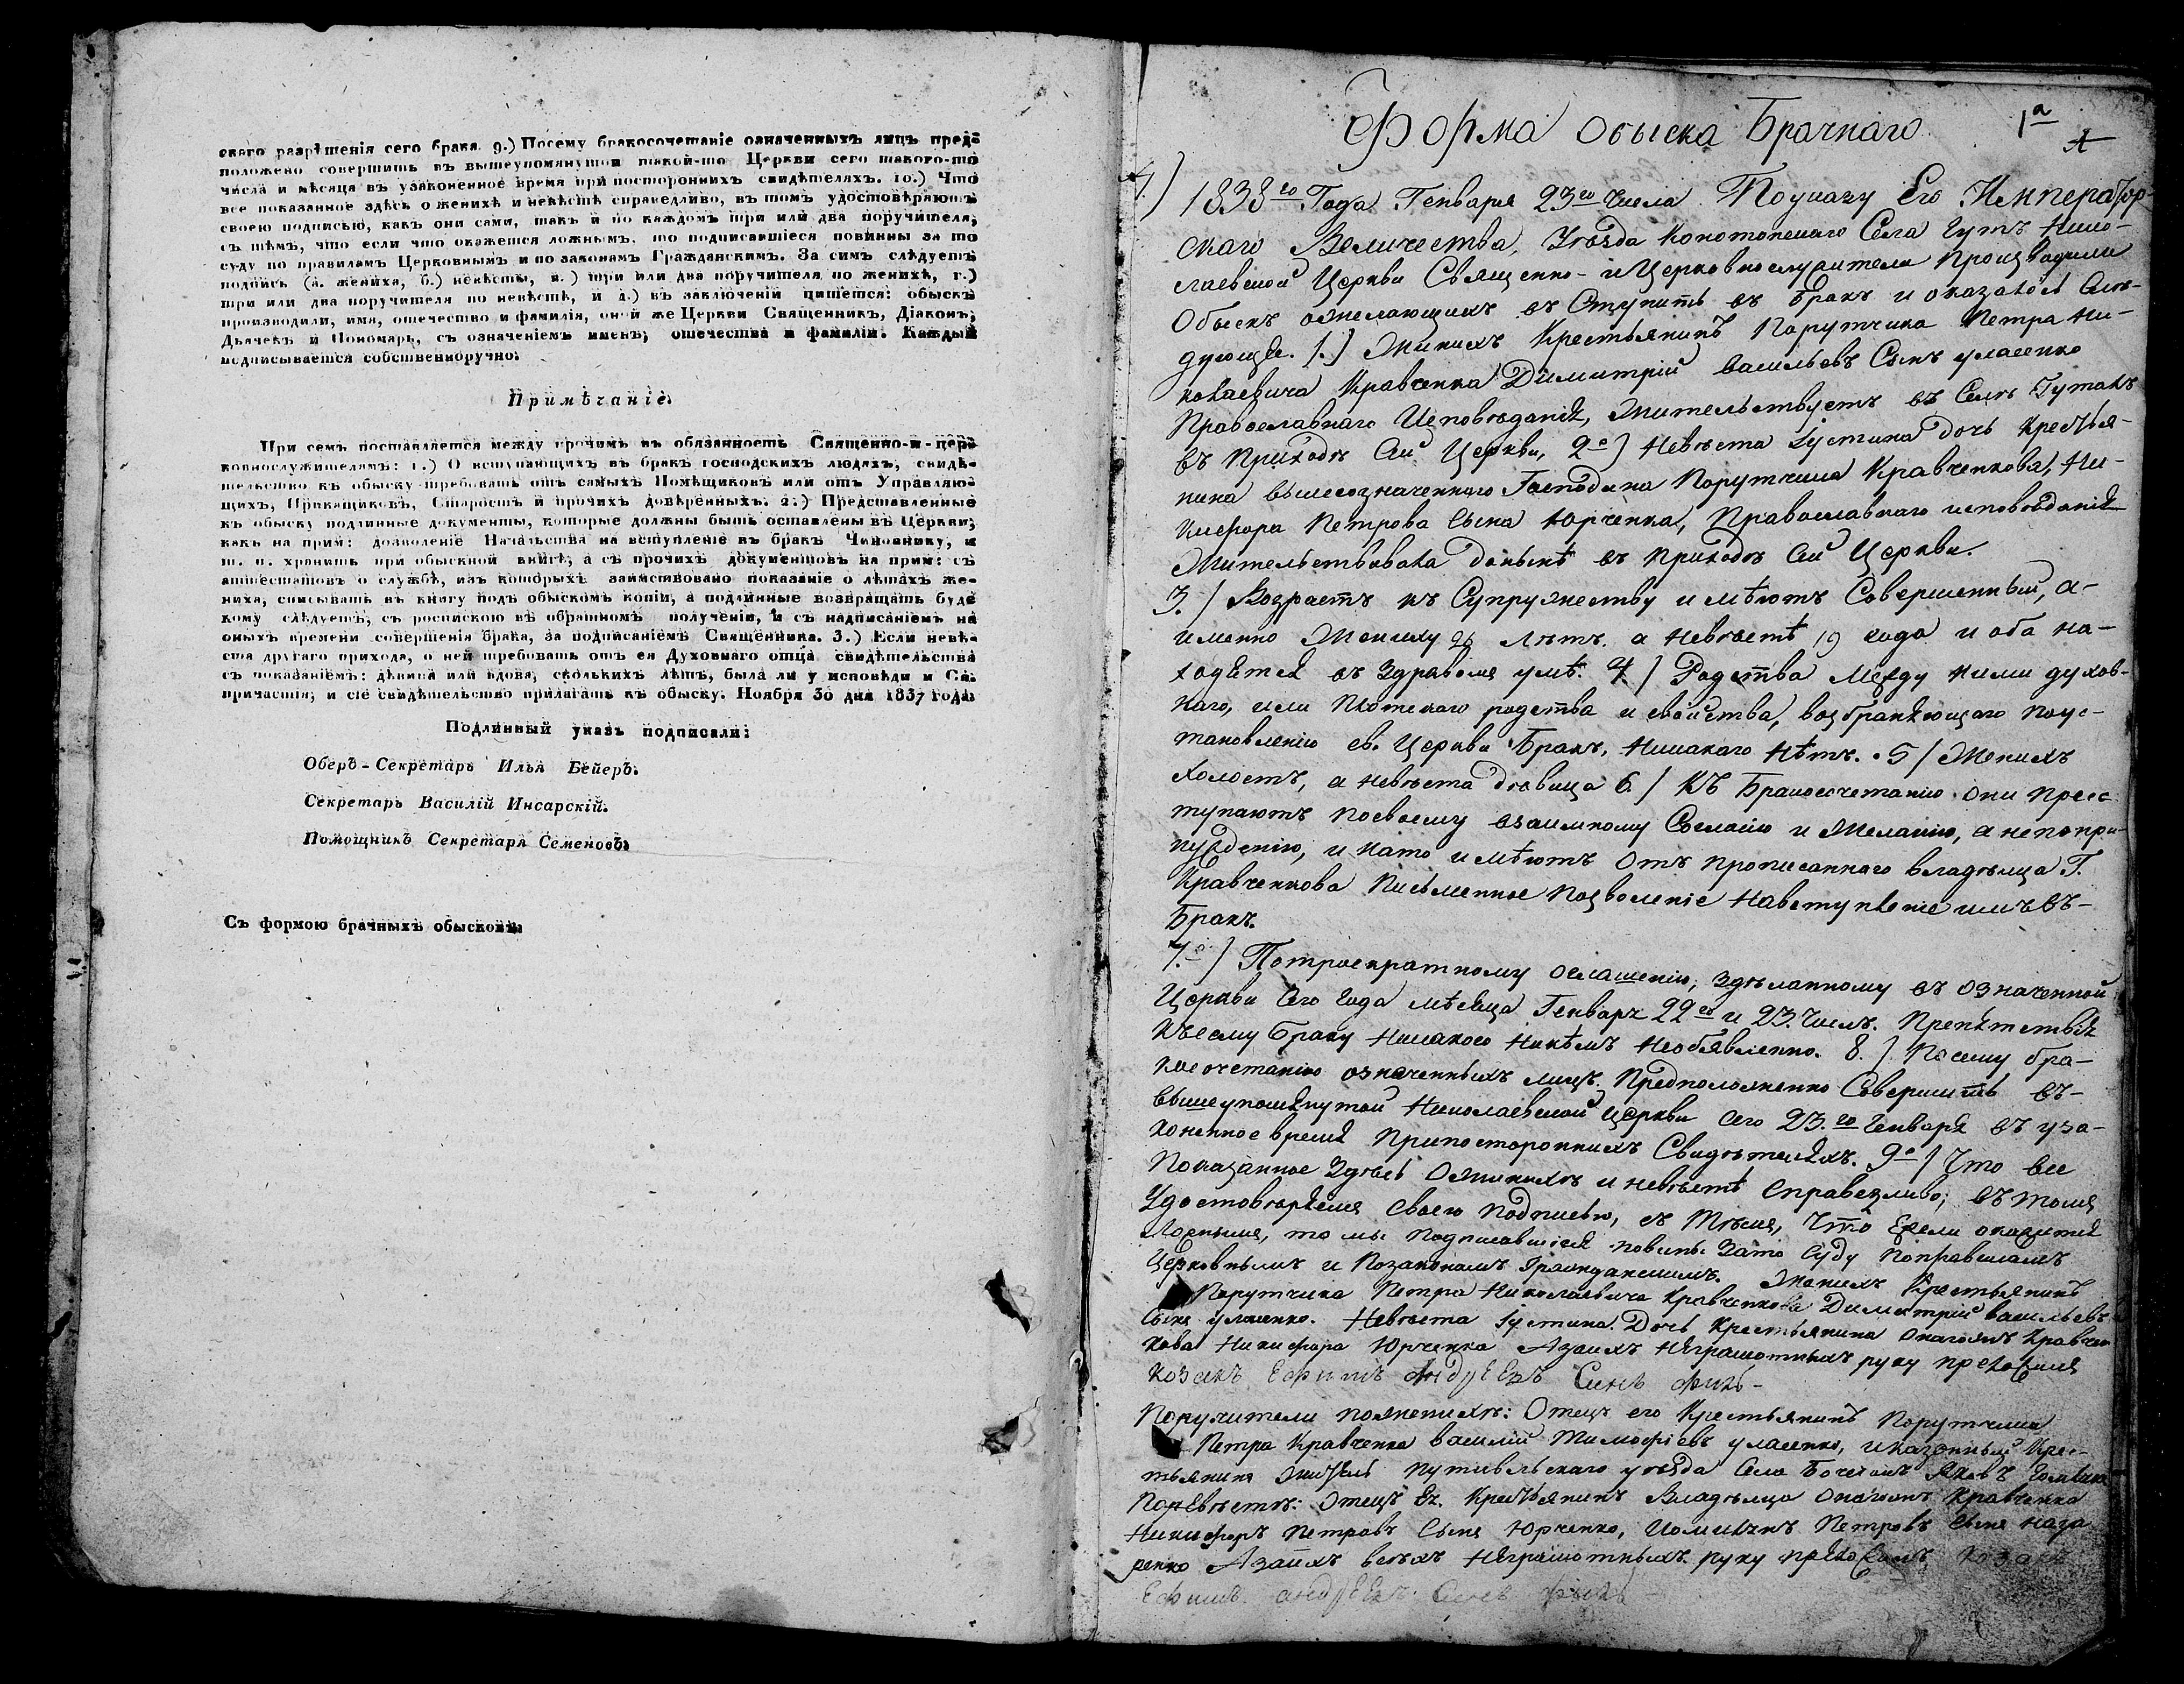 скаго разрѣшенія сего брака. 9.) Посему бракосочетаніе означенныхъ лицъ пред-
положено совершить въ вышеупомянутой такой-то Церкви сего такого-то
числа и мѣсяца въ узаконенное время при постороннихъ свидѣтеляхъ. 10.) Что
все показанное здѣсь о женихѣ и невѣстѣ справедливо, въ томъ удостовѣряютъ
своею подписью, какъ они сами, такъ и по каждомъ три или два поручителя,
съ тѣмъ, что если что окажется ложнымъ, то подписавшіеся повинны за то
суду по правиламъ Церковнымъ и по законамъ Гражданскимъ. За симъ слѣдуетъ
подпись (а. жениха, б.) невѣсты, в.) три или два поручителя по женихѣ, г.)
три или два поручителя по невѣстѣ, и д.) въ заключеніи пишется: обыскъ
производили, имя, отечество и фамилія, оной же Церкви Священникъ, Діаконъ,
Дьячекъ и Пономарь, съ означеніемъ именъ, отечества и фамиліи. Каждый
подписывается собственноручно.
Примѣчаніе.
При семъ поставляется между прочимъ въ обязанность Священно-и-цер-
ковнослужителямъ: 1.) О вступающихъ въ бракъ господскихъ людяхъ, свидѣ-
тельство къ обыску требовать отъ самыхъ Помѣщиковъ или отъ Управляю-
щихъ, Прикащиковъ, Старостъ и прочихъ довѣренныхъ. 2.) Представленные
къ обыску подлинные документы, которые должны быть оставлены въ Церкви,
какъ на прим: дозволеніе Начальства на вступленіе въ бракъ Чиновнику, и
т. п. хранить при обыскной книгѣ; а съ прочихъ документовъ на прим: съ
аттестатовъ о службѣ, изъ которыхъ заимствовано показаніе о лѣтахъ же-
ниха, списывать въ книгу подъ обыскомъ копіи, а подлинные возвращать буде
кому слѣдуетъ, съ роспискою въ обратномъ полученіи, и съ надписаніемъ на
оныхъ времени совершенія брака, за подписаніемъ Священника. 3.) Если невѣ-
ста другаго прихода, о ней требовать отъ ея Духовнаго отца свидѣтельства
съ показаніемъ: дѣвица или вдова, сколькихъ лѣтъ, была ли у исповѣди и Св.
причастія, и сіе свидѣтельство прилагать къ обыску. Ноября 30 дня 1837 года.
Подлинный указъ подписали:
Оберъ-Секретарь Илья Бейеръ.
Секретарь Василій Инсарскій.
Помощникъ Секретаря Семеновъ.
Съ формою брачныхъ обысковъ.
Форма обыска Брачнаго 1а
1838го Года Генваря 23го Числа По указу Его Император-
скаго Величества, Уѣзда Конотопскаго Села Гутъ Нико-
лаевской Церкви Священно- и Церковнослужители производили
Обыскъ о желающихъ въ Ступить въ Бракъ и оказалось Слѣ-
дующее. 1.) Женихъ Крестьянинъ Порутчика Петра Ни-
колаевича Кравченка Димитрій васильевъ Сынъ уласенко
Православнаго Исповѣданія, Жительствуетъ въ Селѣ Гутахъ
въ приходѣ Сей Церкви, 2е) Невѣста Іустина дочь крестья-
нина вышеозначенного Господина Порутчика Кравченкова, Ни-
кифора Петрова Сына Юрченка, Православнаго исповѣданія
Жительствовала донынѣ въ приходѣ Сей Церкви.
3.) Возрастъ къ Супружеству имѣютъ Совершенный, а-
именно Жениху 26 лѣтъ. а невѣстѣ 19 года и оба на-
ходятся въ Здравомъ умѣ. 4) Родства Между ними духов-
наго, или Плотскаго родства и свойства, возбраняющаго поус-
тановленію св. Церкви Бракъ, Никакаго Нѣтъ. 5) Женихъ
холостъ, а невѣста дѣвица 6) Къ Бракосочетанію они прис-
тупаютъ посвоему взаимному Согласію и Желанію, а непопри-
нужденію, и на то имѣютъ Отъ прописаннаго владѣльца Г.
Кравченкова Письменное Позволеніе Навступленіе имъ въ-
Бракъ.
7.е) Потроекратному оглашенію, здѣланному въ означенной
Церкви Сего Года мѣсяца Генваря 22го и 23. Числъ. Препятствія
Къ сему Браку Никакого Никѣмъ Необъявленно. 8.) Посему бра-
косочетанію означенныхъ лицъ. Предположенно Совершить въ-
вышеупомянутой Николаевской Церкви Сего 23.го Генваря въ уза-
коненное время Припостороннихъ Свидѣтеляхъ. 9е) Что все
Показанное Здѣсь Оженихѣ и невѣстѣ Справедливо; въ томъ
Удостовѣряемъ Своею подписью, съ Тѣмъ, что Ежели окажется
Ложнымъ, то мы Подписавшіеся повины Зато Суду Поправиламъ
Церковнымъ и Позаконамъ Гражданскимъ. Женихъ Крестьянинъ
Порутчика Петра Николаевича Кравченкова Димитрій васильевъ
Сынъ уласенко. Невѣста Іустина Дочь Крестьянина Онагожъ Кравчен
кова Никифора Юрченка Азаихъ Неграмотныхъ руку приложилъ
козакъ Ефимъ андреевъ Синъ
Поручители поженихѣ: Отецъ его Крестьянинъ Порутчика
Петра Кравченка василій Тимофіевъ уласенко, и казенный Крес-
тьянинъ Житель Путивльскаго уѣзда Села Яковъ
Поневѣстѣ: Отецъ Ея. Крестьянинъ Владѣльца Онагожъ Кравченка
Никифоръ Петровъ Сынъ Юрченко, Петровъ Сынъ Наза
ренко Азаихъ всѣхъ Неграмотныхъ руку приложилъ козакъ
Ефимъ андреевъ Синъ